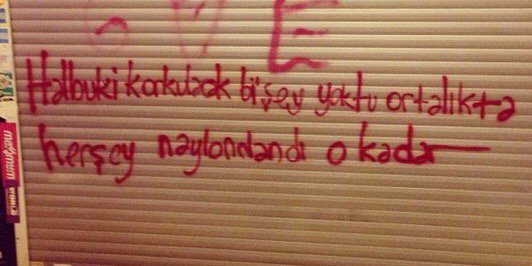 E
Halbuki korkulacak bişey yoktu ortalıkta
herşey naylondandı o kadar
maximum